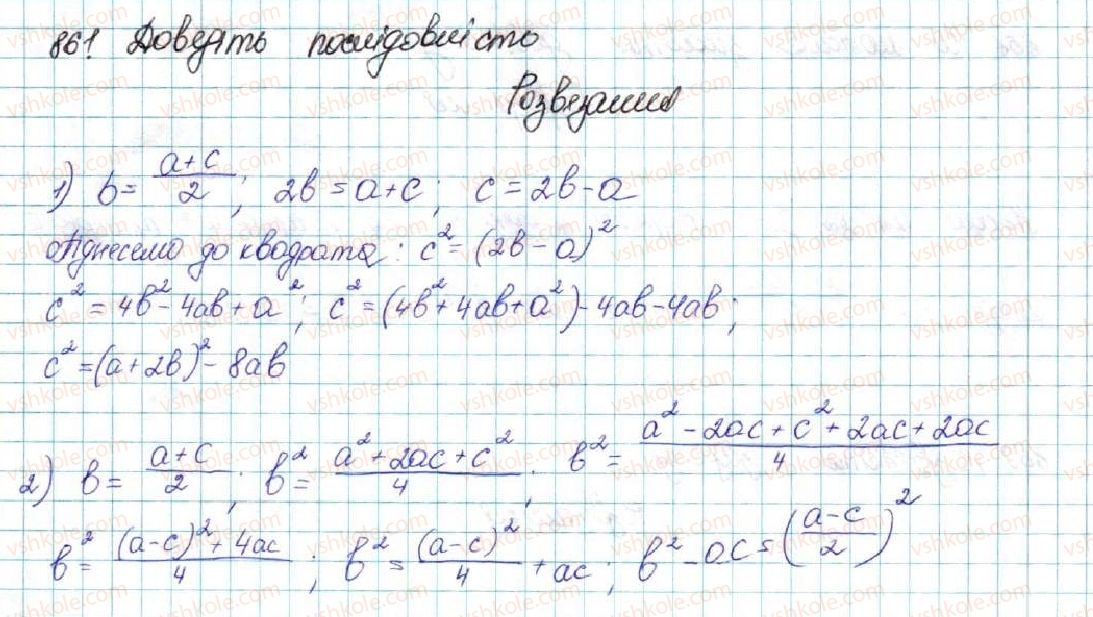 861. Доведіть послідовністю
Розвезання
1) b = \frac{a+c}{2}; 2b = a+c; c = 2b-a
Піднесемо до квадрата: c² = (2b-a)²
c² = 4b² - 4ab + a²; c² = (4b² + 4ab + a²) - 4ab - 4ab;
c² = (a+2b)² - 8ab
2) b = \frac{a+c}{2}; b² = \frac{a² + 2ac + c²}{4}; b² = \frac{a² - 2ac + c² + 2ac + 2ac}{4}
b² = \frac{(a-c)² + 4ac}{4}; b² = \frac{(a-c)²}{4} + ac; b² - ac = (\frac{a-c}{2})²